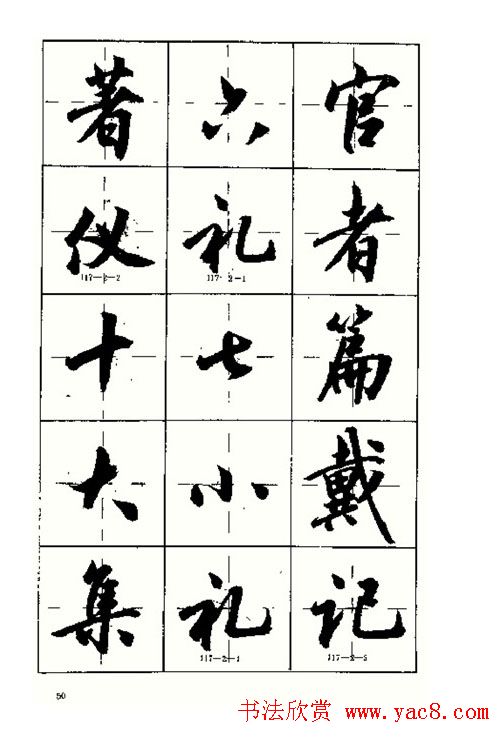 著六官
仪礼者
117—2—2 117—2—1
十七篇
大小戴
集礼记
117—2—1
50
书法欣赏 www.yac8.com